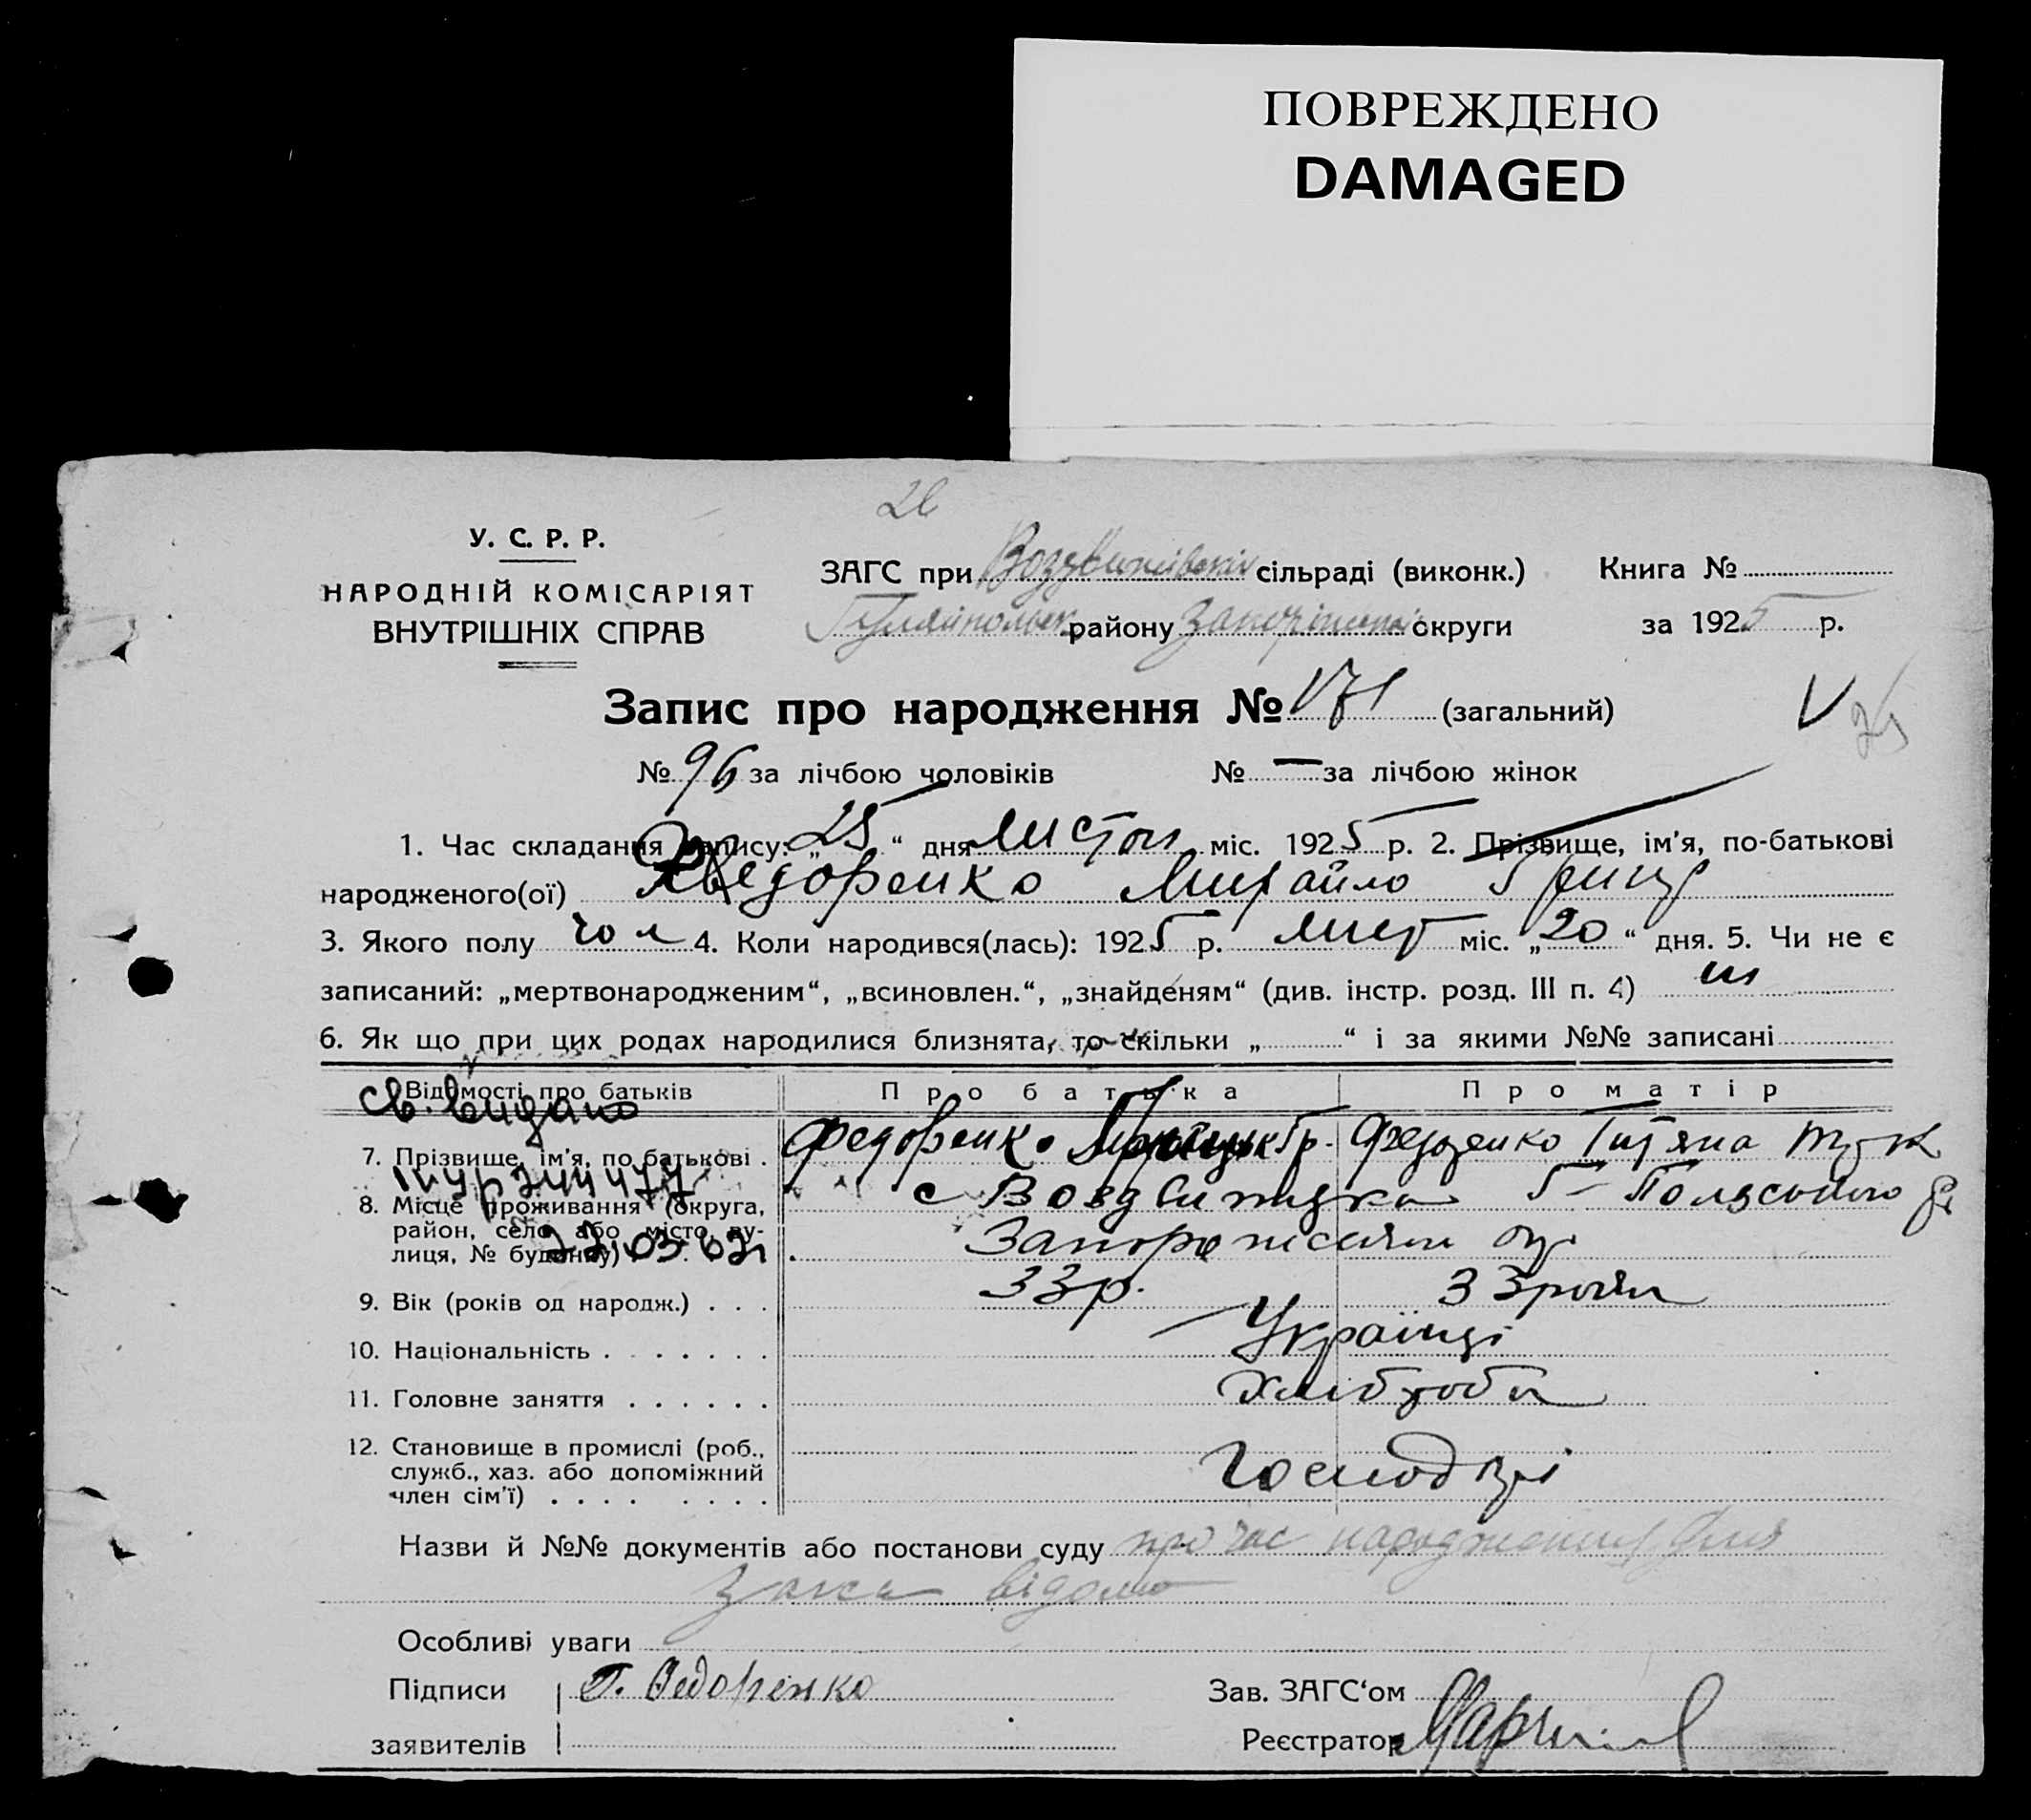 ПОВРЕЖДЕНО
DAMAGED
У. С. Р. Р.
НАРОДНІЙ КОМІСАРІЯТ
ВНУТРІШНІХ СПРАВ
ЗАГС при сільраді (виконк.) Книга №
району округи за 1925 р.
Запис про народження № 171 (загальний)
№ 96 за лічбою чоловіків № — за лічбою жінок
1. Час складання запису: „25“ дня листоп міс. 1925 р. 2. Прізвище, ім'я, по-батькові
народженого(ої) Хведоренко Михайло Гриць
3. Якого полу чол 4. Коли народився(лась): 1925 р. лист міс. „20“ дня. 5. Чи не є
записаний: „мертвонародженим“, „всиновлен.“, „знайденям“ (див. інстр. розд. III п. 4) ні
6. Як що при цих родах народилися близнята, то скільки „ “ і за якими №№ записані
Відомості про батьків Про батька Про матір
Св. видано
7. Прізвище, ім'я, по батькові . Федоренко Гр. Тит'яна
8. Місце проживання (округа, район, село або місто, вулиця, № будинку) с Воздвижка Г-Поляського
22.03.62
9. Вік (років од народж.) . . . 33р. 33
10. Національність . . . . . . . Українці
11. Головне заняття . . . . . .
12. Становище в промислі (роб., служб., хаз. або допоміжний член сім'ї) . . . . . . . .
Назви й №№ документів або постанови суду про час народження
відомо
Особливі уваги
Підписи Г. Федоренко Зав. ЗАГС'ом
заявителів Реєстратор